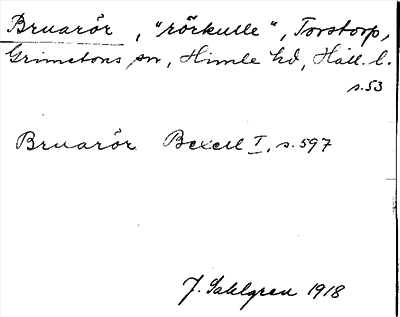 Bruarör, "rörkulle", Torstorp,
Grimetons sn, Himle hd, Hall. l.
s. 53
Bruarör Bexell I, s. 597
J. Sahlgren 1918